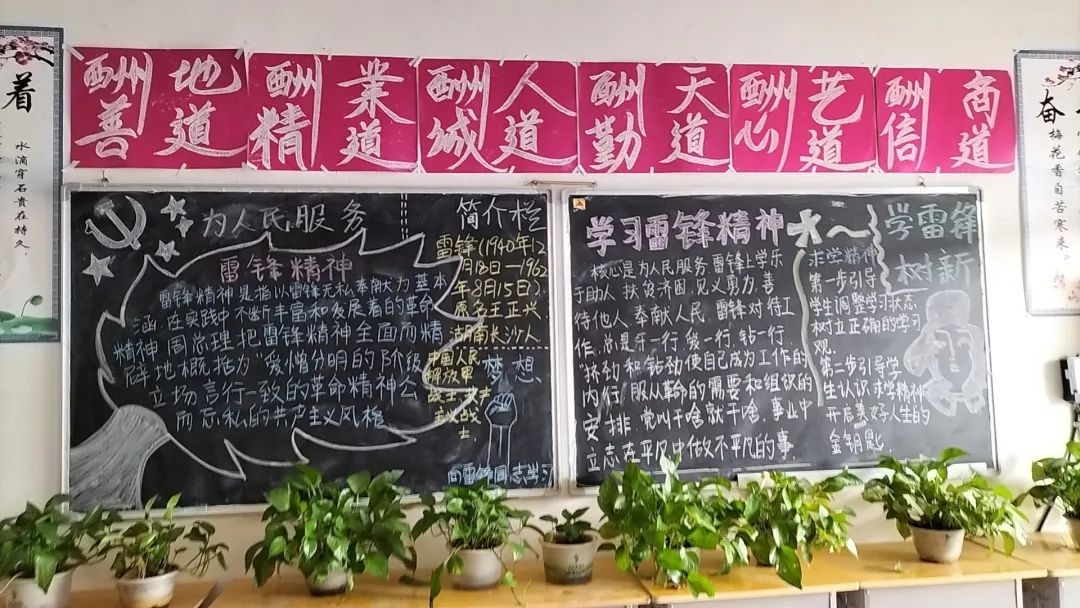 着
水滴穿石贵在持久
地道
酬善
業道
酬精
人道
酬诚
天道
酬勤
艺道
酬心
商道
酬信
奋
梅花香自苦寒来。
为人民服务
雷锋精神
雷锋精神是指以雷锋无私奉献为基本
涵,在实践中不断丰富和发展着的革命
精神,周总理把雷锋精神全面而精
辟地概括为“爱憎分明的阶级
立场,言行一致的革命精神公
而忘私的共产主义风格
简介栏
雷锋(1940年12
月18日—1962
年8月15日),
原名王正兴,
湖南长沙人
中国人民
解放军
战士
主义战
士,
梦想,
向雷锋同志学习
学习雷锋精神
核心是为人民服务,雷锋上学乐
于助人,扶贫济困,见义勇为,善
待他人,奉献人民,雷锋对待工
作,总是干一行,爱一行,钻一行,
“挤劲和钻劲使自己成为工作的
内行,服从革命的需要和组织的
安排,党叫干啥就干啥,事业中
立志在平凡中做不平凡的事.
求学精神
第一步引导
学生调整学习状态,
树立正确的学习
观.
第二步引导学
生认识求学精神
开启美好人生的
金钥匙
学雷锋
树新